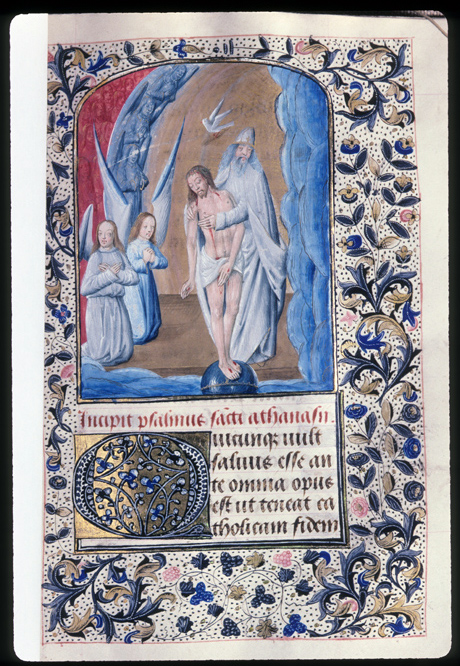 Incipit psalmus sācti athanasii.
Quicunque vult
salvus esse an
te omnia opus
est ut teneat ca
tholicam fidem